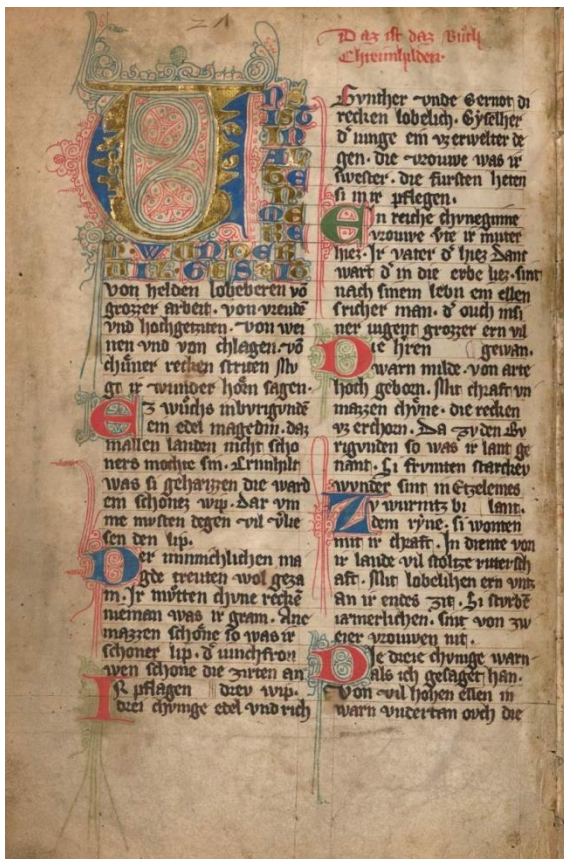 21
Daz ist daz Buͦch
Chreimhilden·
UNS
IST
IN
AL
TEN
MÆRE
R· WVNDER
VIL GESEIT
von helden lobeberen võ
grozzer arbeit· von vreude
vnd hochgeziten· von wei
nen vnd von chlagen· võ
chuͤner recken striten Mv
ge ir wunder horn sagen·
Ez wuͦchs inbvrigvnde
ein edel magedin· daz
in allen landen nicht scho
ners mochte sin· Crimhilt
was si geheizzen die ward
ein schonez wip· Dar vm
me mvsten degen vil v͛lie
sen den lip·
Der minnichlichen ma
gde treuten wol geza
m· Ir mvtten chvne recke
nieman was ir gram· Ane
mazzen schone so was ir
schoner lip· d͛ iunchfrou
wen schone die zirten an
Ir pflagen drev wip·
drei chvnige edel vnd rich
Gvnther vnde Gernot di
recken lobelich· Gyselher
d͛ iunge ein vz erwelter de
gen· die vrouwe was ir
swester· die fursten heten
si in ir pflegen·
Ein reiche chvneginne
vrouwe Vte ir muter
hiez· Ir vater d͛ hiez Danc
wart d͛ in die erbe liez· sint
nach sinem lebn ein ellen
sricher man· d͛ ouch insi
ner iugent grozzer ern vil
Die hren gewan·
warn milde· von arte
hoch geborn· Mit chraft vn
mazzen chvne· die recken
vz erchorn· Da zv den Bv
rigvnden so was ir lant ge
nant· Si frvmten starchev
wvnder sint in Etzelemes
Zv wurmtz bi lant·
dem ryne· si wonten
mit ir chraft· In diente von
ir lande vil stoltze ritersch
aft· Mit lobelihen ern vntz
an ir endes zit· Si stvrbe
iæmerlichen· sint von zw
eier vrouwen nit·
Die dreie chvnige warn
als ich gesaget han·
Von vil hohen ellen in
warn vndertan ovch die